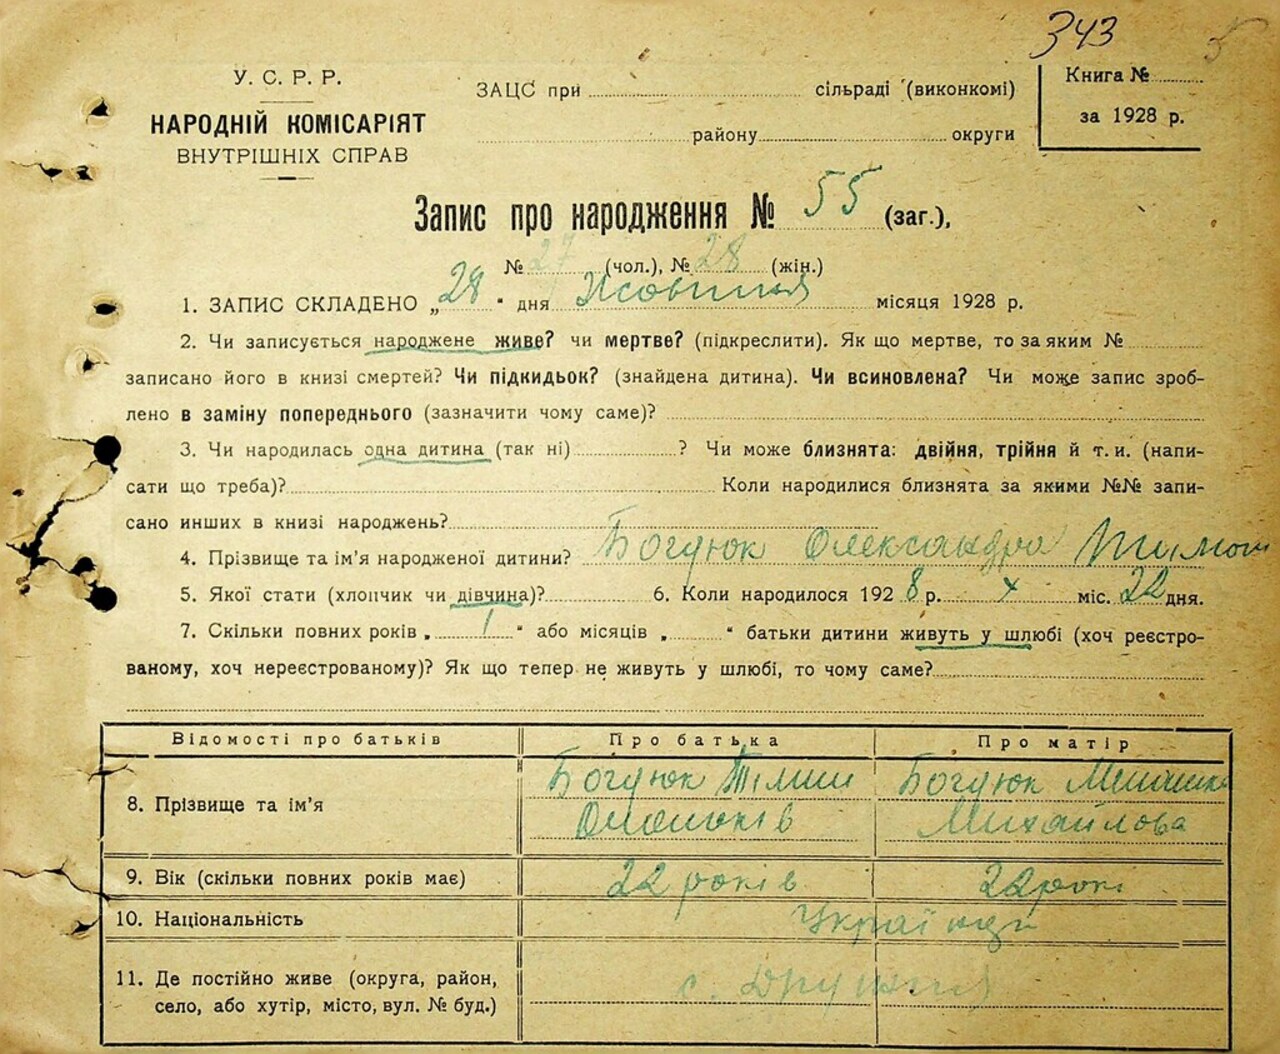 343
У. С. Р. Р.
НАРОДНІЙ КОМІСАРІЯТ
ВНУТРІШНІХ СПРАВ
ЗАЦС при сільраді (виконкомі)
району округи
Книга №
за 1928 р.
Запис про народження № 55 (заг.),
№ 27 (чол.), № 28 (жін.)
1. ЗАПИС СКЛАДЕНО „28" дня Жовтня місяця 1928 р.
2. Чи записується народжене живе? чи мертве? (підкреслити). Як що мертве, то за яким №
записано його в книзі смертей? Чи підкидьок? (знайдена дитина). Чи всиновлена? Чи може запис зроб-
лено в заміну попереднього (зазначити чому саме)?
3. Чи народилась одна дитина (так ні) ? Чи може близнята: двійня, трійня й т. и. (напи-
сати що треба)? Коли народилися близнята за якими №№ запи-
сано инших в книзі народжень?
4. Прізвище та ім'я народженої дитини? Богдюк Олександра
5. Якої стати (хлопчик чи дівчина)? 6. Коли народилося 1928 р. X міс. 22 дня.
7. Скільки повних років „ 1 " або місяців „ " батьки дитини живуть у шлюбі (хоч реєстро-
ваному, хоч нереєстрованому)? Як що тепер не живуть у шлюбі, то чому саме?
Відомості про батьків Про батька Про матір
8. Прізвище та ім'я Богдюк Богдюк
Михайлова
9. Вік (скільки повних років має) 22 років 22 рокі
10. Національність Українці
11. Де постійно живе (округа, район,
село, або хутір, місто, вул. № буд.) с.